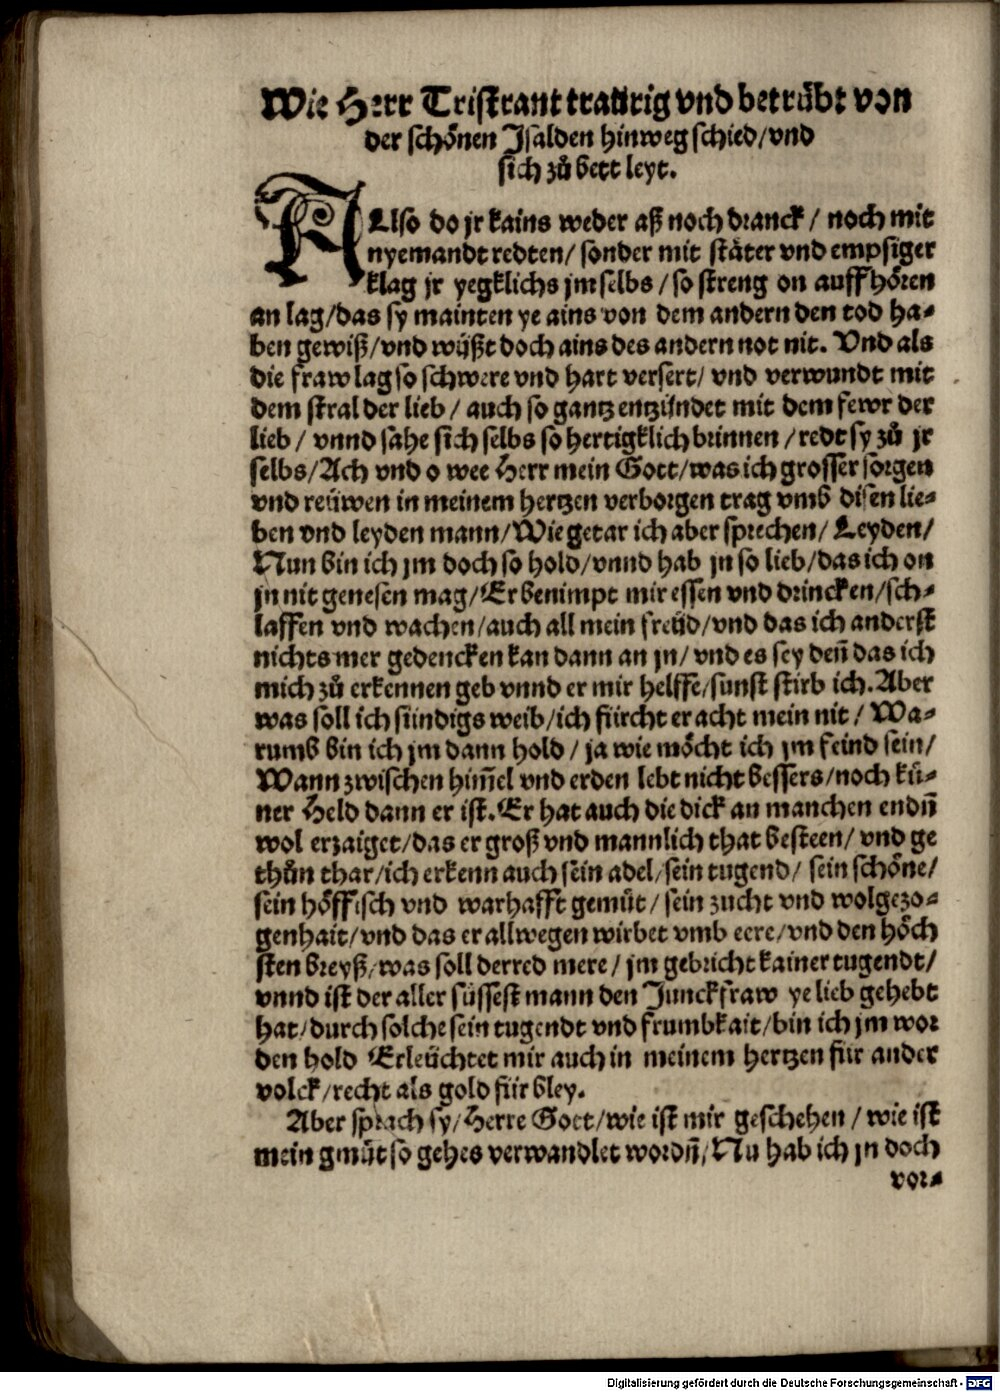 Wie Herr Tristrant traurig vnd betrübt von
der schönen Jsalden hinweg schied/vnd
sich zů bett leyt.
ALso do jr kains weder aß noch dranck / noch mit
nyemandt redten/ sonder mit stäter vnd empsiger
klag jr yegklichs jm selbs / so streng on auffhören
an lag/das sy mainten ye ains von dem andern den tod ha⸗
ben gewiß/vnd wüßt doch ains des andern not nit. Vnd als
die fraw lag so schwere vnd hart versert/ vnd verwundt mit
dem stral der lieb / auch so gantz entzündet mit dem fewr der
lieb / vnnd sahe sich selbs so hertigklich brinnen / redt sy zů jr
selbs/Ach vnd o wee Herr mein Gott/was ich grosser sorgen
vnd reüwen in meinem hertzen verborgen trag vmb disen lie⸗
ben vnd leyden mann/Wie getar ich aber sprechen/ Leyden/
Nun bin ich jm doch so hold/vnnd hab jn so lieb/das ich on
jn nit genesen mag/Er benimpt mir essen vnd drincken/sch⸗
laffen vnd wachen/auch all mein freüd/vnd das ich anderst
nichts mer gedencken kan dann an jn/ vnd es sey deñ das ich
mich zů erkennen geb vnnd er mir helffe/sunst stirb ich. Aber
was soll ich sündigs weib/ich fürcht er acht mein nit / Wa⸗
rumb bin ich jm dann hold / ja wie möcht ich jm feind sein/
Wann zwischen him̃el vnd erden lebt nicht bessers/noch kü⸗
ner Held dann er ist. Er hat auch die dick an manchen endñ
wol erzaiget/das er groß vnd mannlich that besteen/ vnd ge
thůn thar/ich erkenn auch sein adel/sein tugend/ sein schöne/
sein höffisch vnd warhafft gemüt / sein zucht vnd wolgezo⸗
genhait/vnd das er allwegen wirbet vmb eere/vnd den höch
sten breyß/was soll der red mere / jm gebricht kainer tugendt/
vnnd ist der aller süssest mann den Junckfraw ye lieb gehebt
hat/durch solche sein tugendt vnd frumbkait/bin ich jm wor
den hold Erleüchtet mir auch in meinem hertzen für ander
volck/recht als gold für bley.
Aber sprach sy/Herre Gott/wie ist mir geschehen / wie ist
mein gmüt so gehes verwandlet wordñ/Nu hab ich jn doch
vor⸗
Digitalisierung gefördert durch die Deutsche Forschungsgemeinschaft - DFG